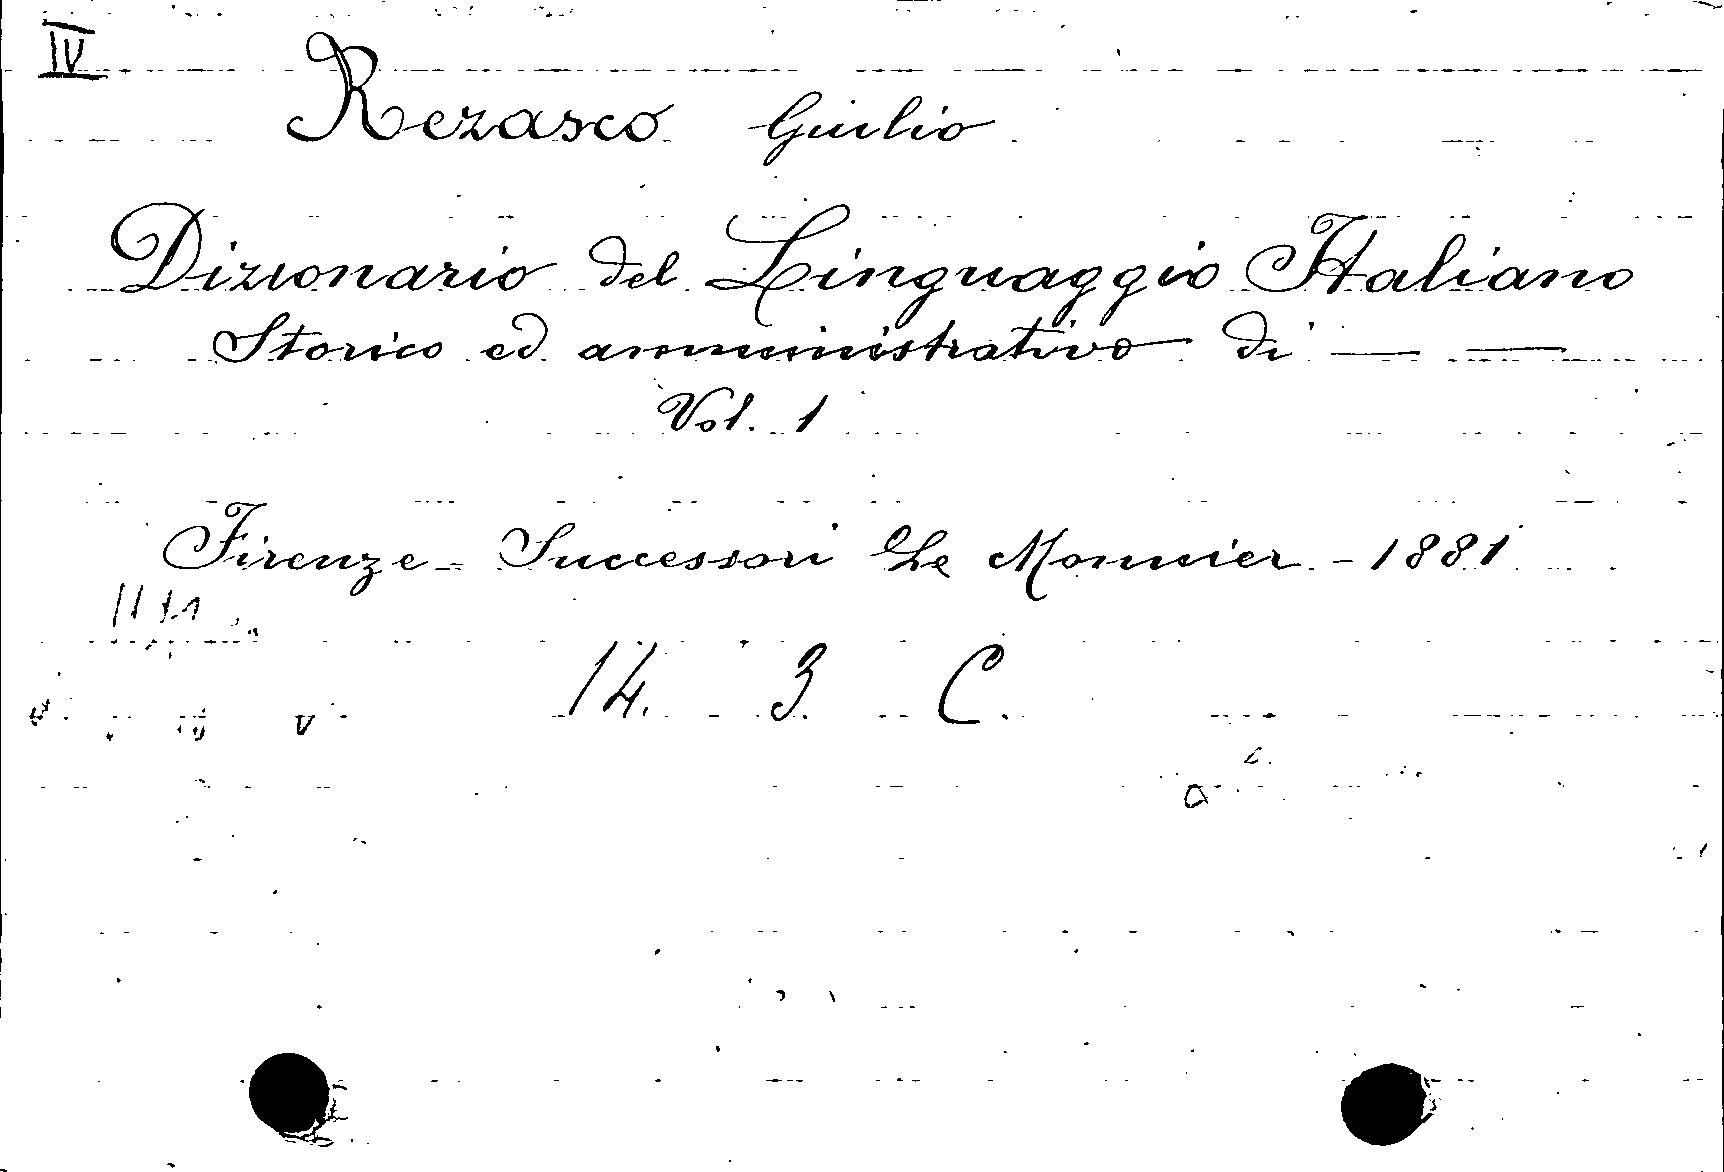 IV
Rezasco Giulio
Dizionario del Linguaggio Italiano
Storico ed amministrativo di — —
Vol. 1
Firenze - Successori Le Monnier - 1881
14. 3. C.